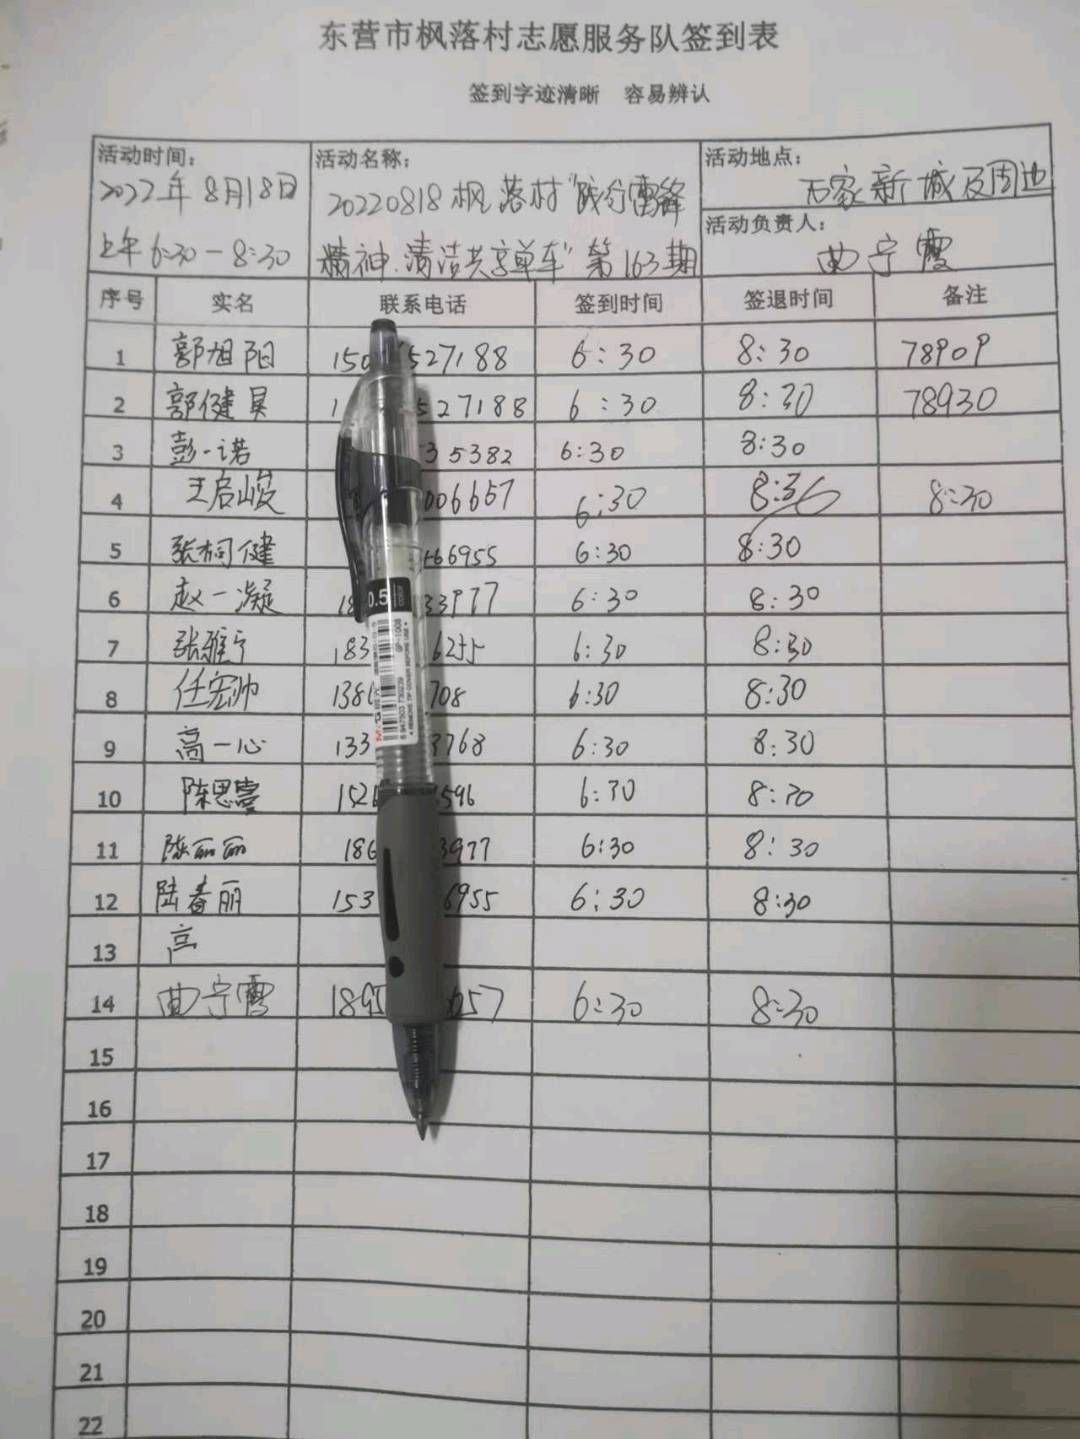 东营市枫落村志愿服务队签到表
签到字迹清晰 容易辨认
活动时间:
2022年8月18日
上午6:30-8:30
活动名称:
20220818枫落村"践行雷锋
精神.清洁共享单车"第163期
活动地点:
万家新城及周边
活动负责人:
曲宁霞
序号 实名 联系电话 签到时间 签退时间 备注
1 郭旭阳 150 527188 6:30 8:30 78909
2 郭健 1 527188 6:30 8:30 78930
3 彭一诺 35382 6:30 8:30
4 王启峻 006657 6:30 8:30
5 张桐健 66955 6:30 8:30
6 赵一凝 18 33977 6:30 8:30
7 张雅宁 183 6255 6:30 8:30
8 任宏帅 138 708 6:30 8:30
9 高一心 133 3768 6:30 8:30
10 陈思 152 596 6:30 8:30
11 陈丽丽 186 3977 6:30 8:30
12 陆春丽 153 6955 6:30 8:30
13 高
14 曲宁霞 189 657 6:30 8:30
15
16
17
18
19
20
21
22
0.5
GP-1008